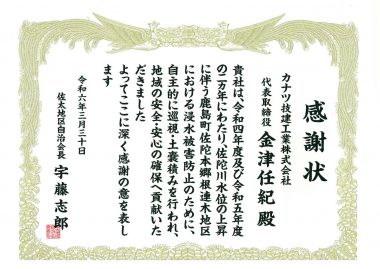 感謝状
カナツ技建工業株式会社
代表取締役 金津任紀殿
貴社は、令和四年度及び令和五年度
の二カ年にわたり、佐陀川水位の上昇
に伴う鹿島町佐陀本郷根連木地区
における浸水被害防止のために、
自主的に巡視・土嚢積みを行われ、
地域の安全・安心の確保へ貢献いた
だきました
よってここに深く感謝の意を表し
ます
令和六年三月三十日
佐太地区自治会長 宇藤志郎